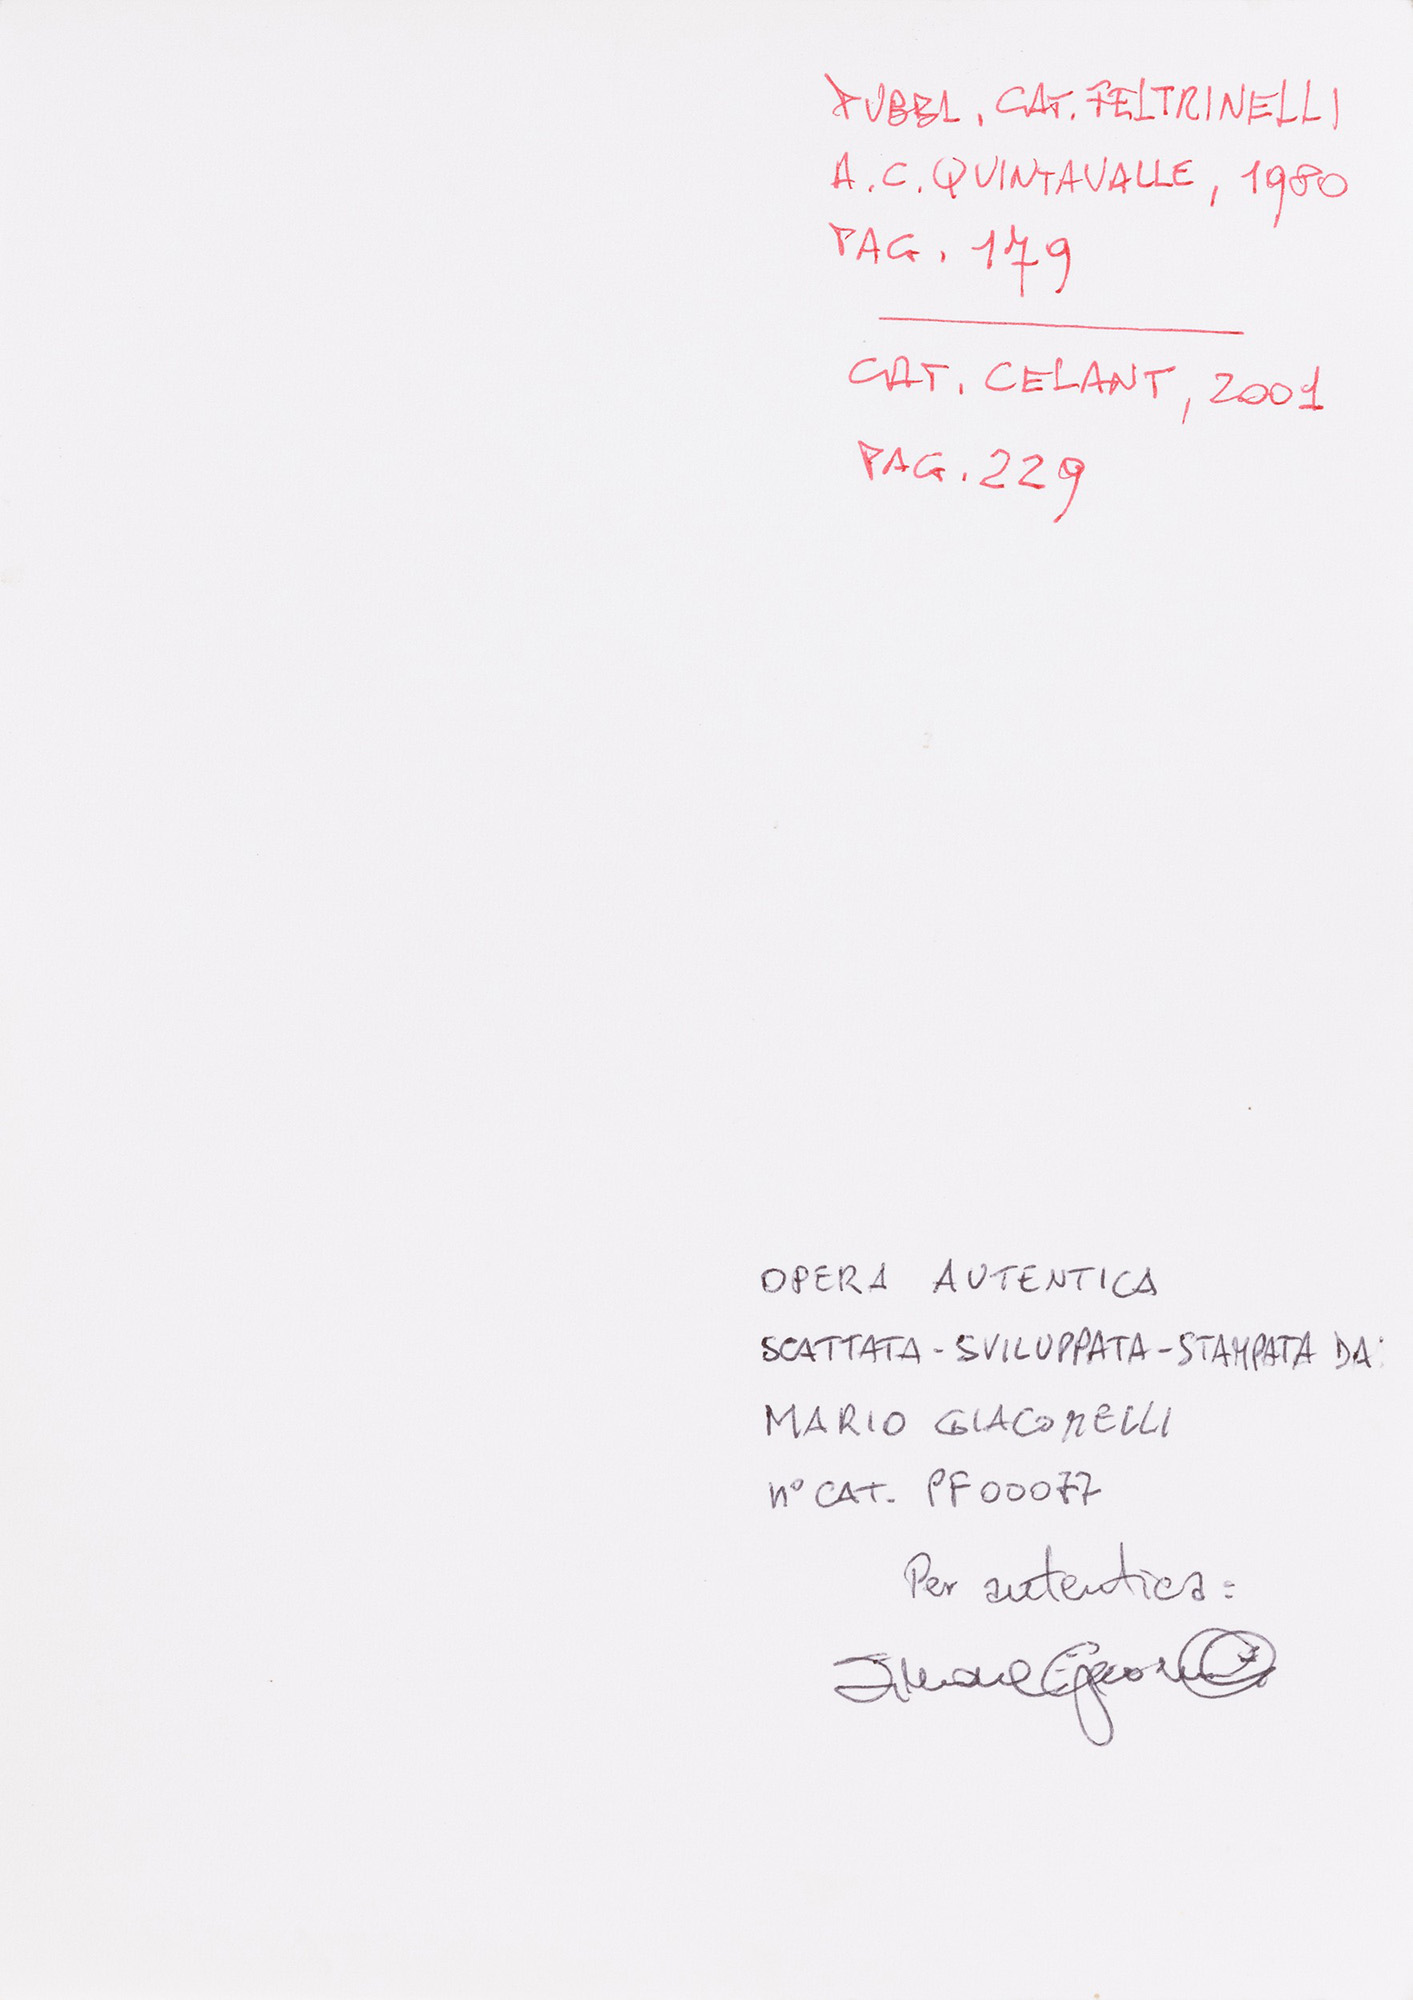 PUBBL. CAT. FELTRINELLI
A.C. QUINTAVALLE, 1980
PAG. 179
CAT. CELANT, 2001
PAG. 229
OPERA AUTENTICA
SCATTATA-SVILUPPATA-STAMPATA DA:
MARIO GIACOMELLI
n° CAT. PF00077
Per autentica:
Simone